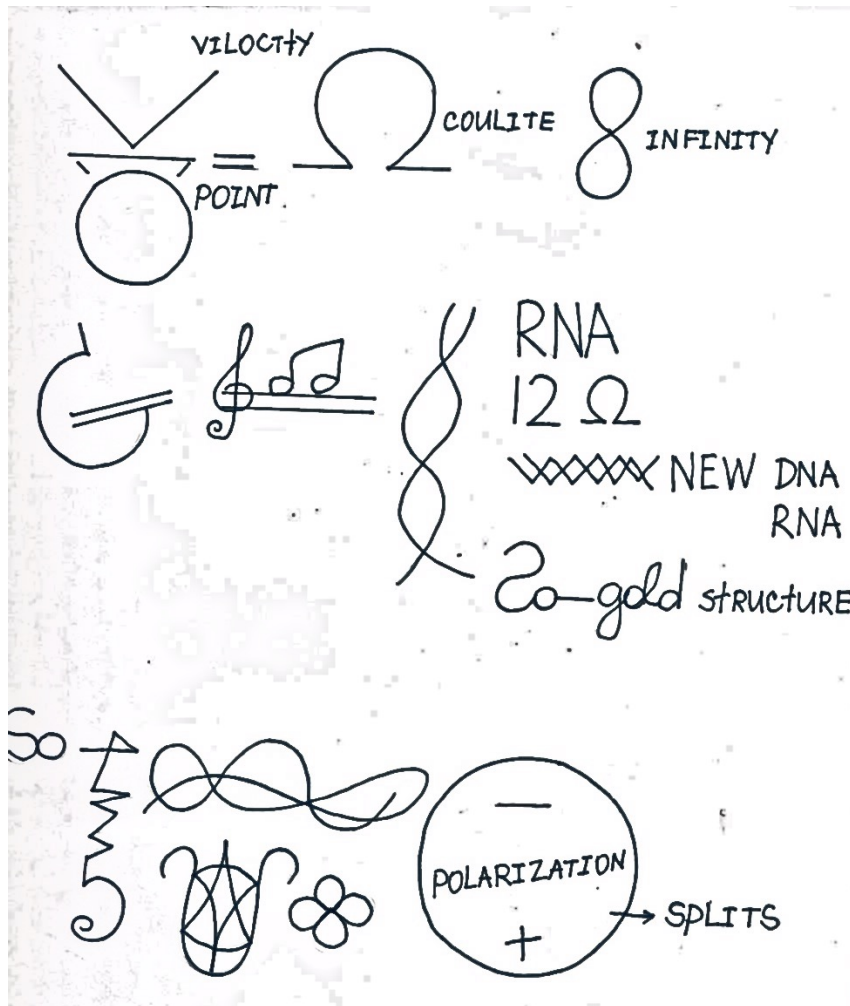 VILOCITY
= Ω COULITE 8 INFINITY
POINT.
RNA
12 Ω
NEW DNA
RNA
So-gold STRUCTURE
So
5
−
POLARIZATION
→ SPLITS
+